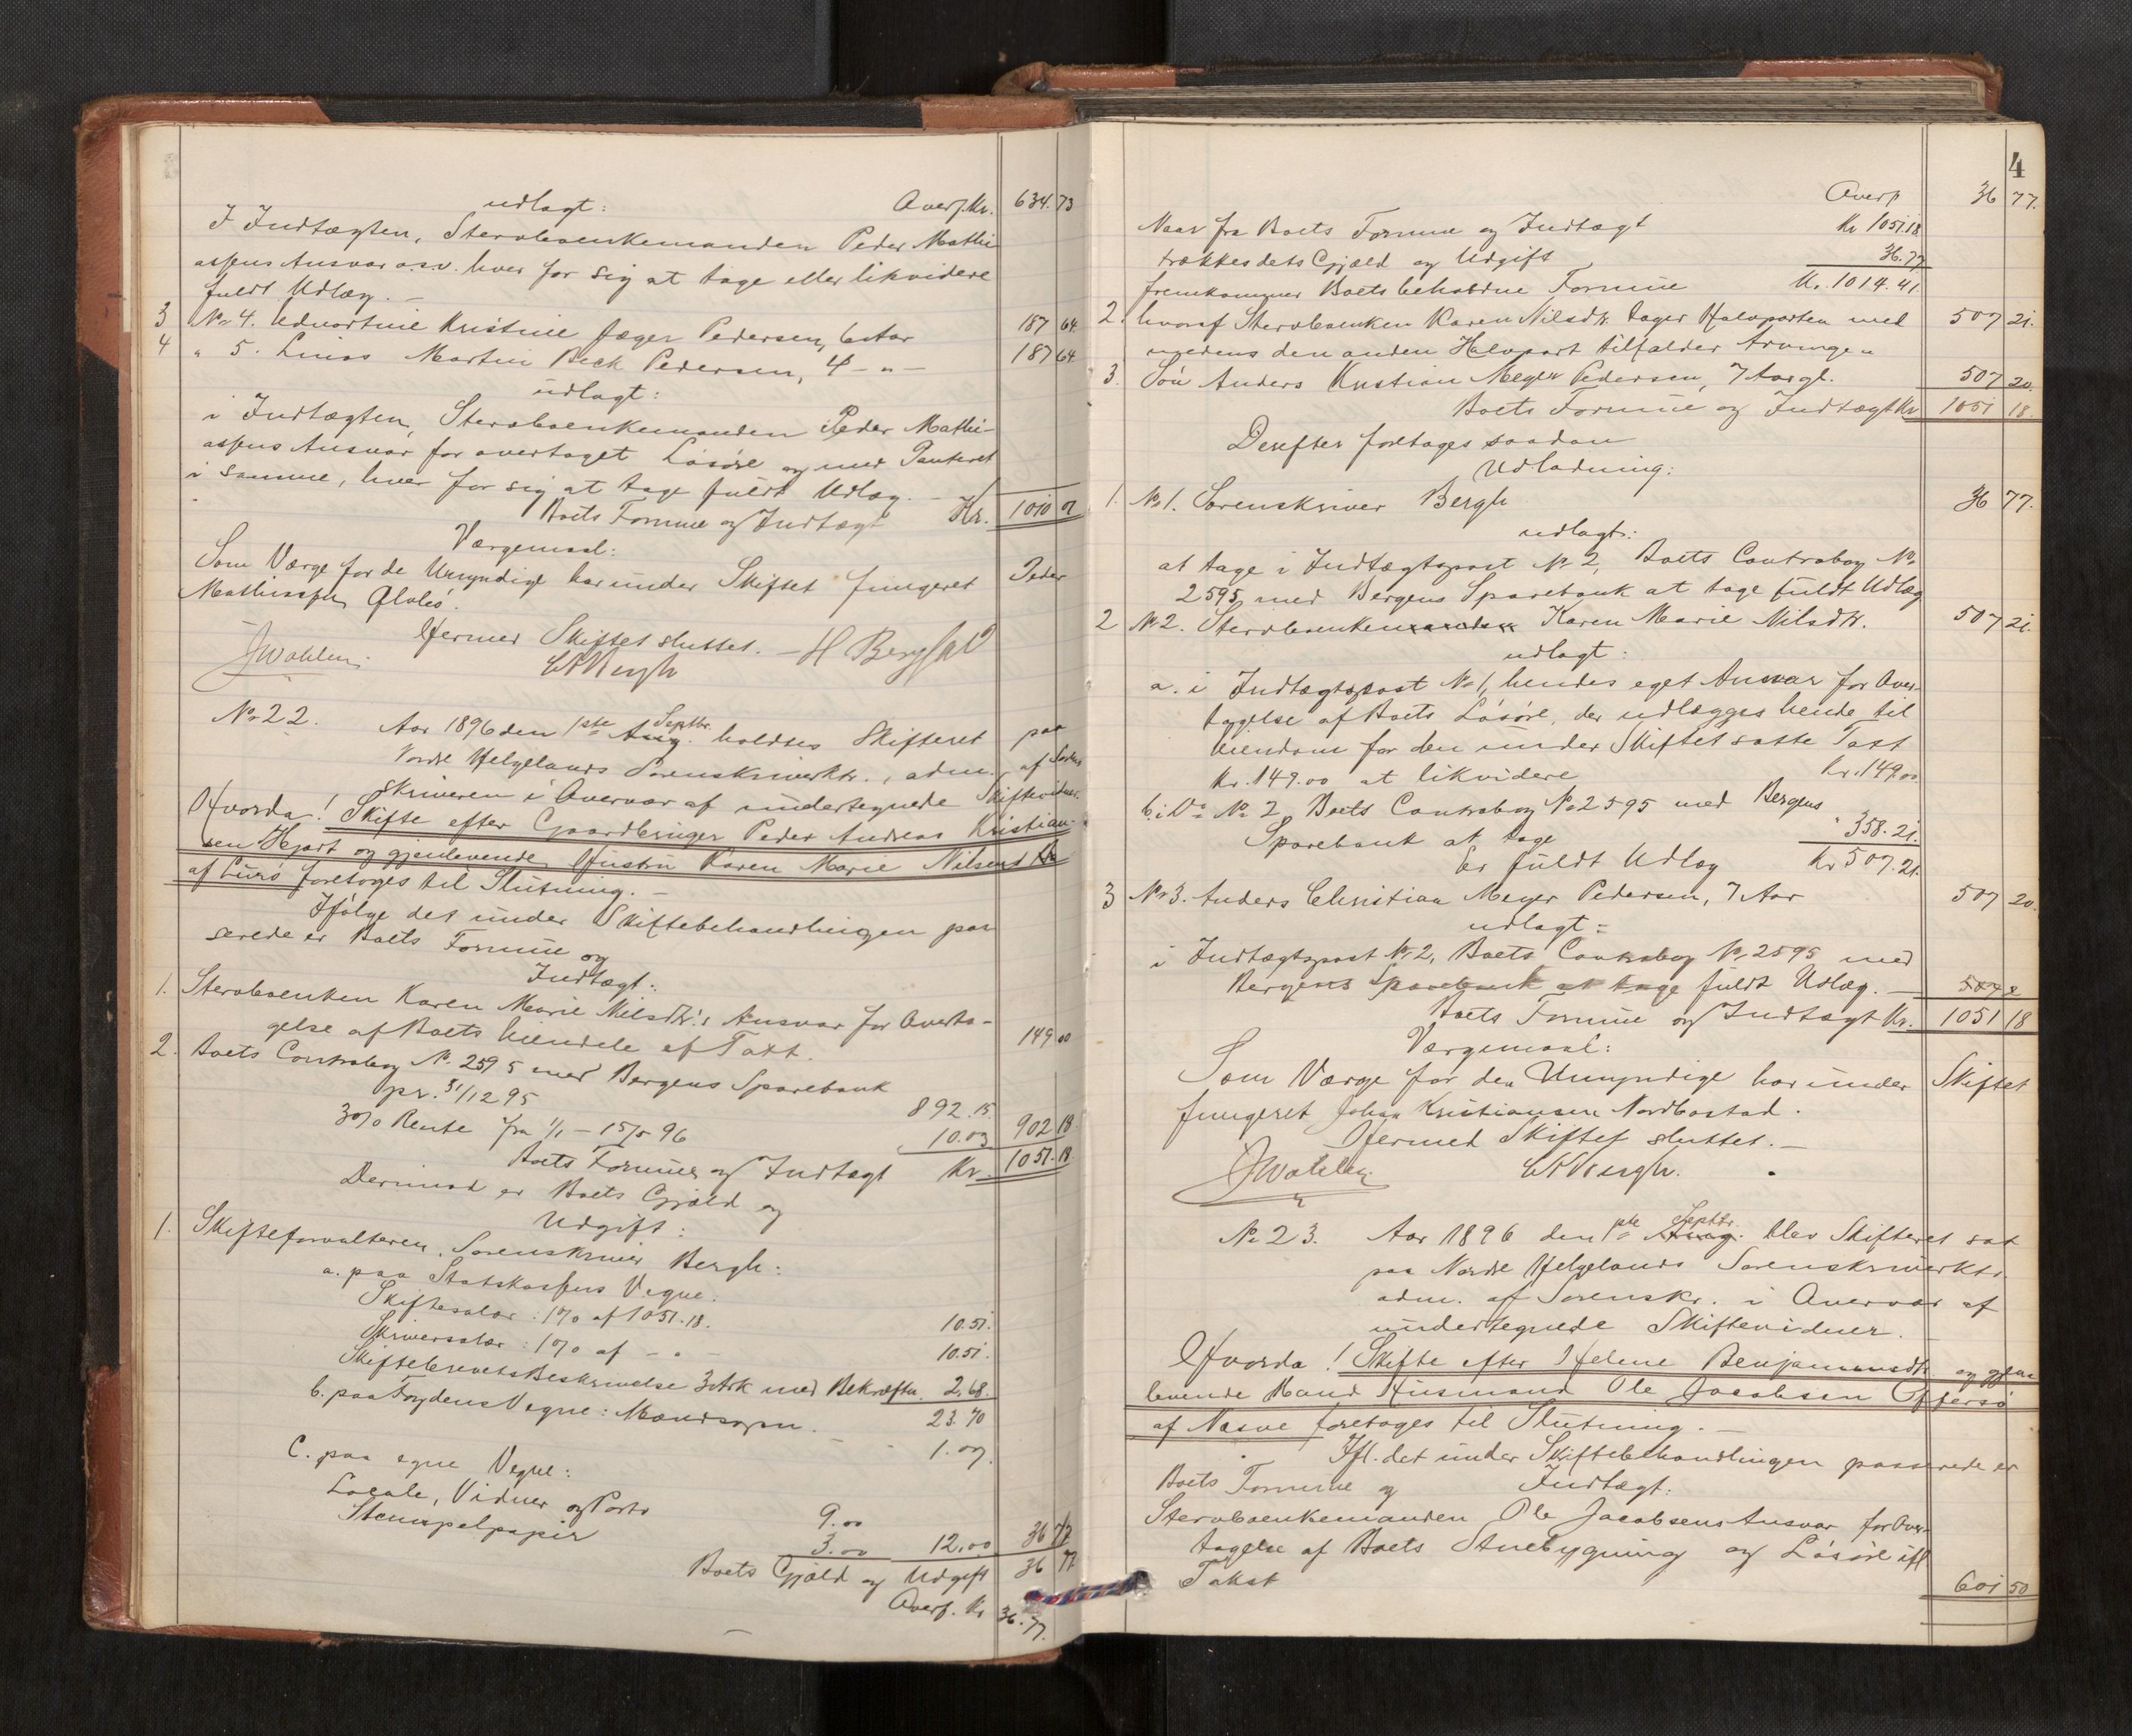 udlagt: Overf. Kr. 634.73
I Indtægten, Stervboenkemanden Peder Mathi-
assens Ansvar o.s.v. hver for sig at tage eller likvidere
fuldt Udlæg. —
3 No 4. Edvartine Kristine Jæger Pedersen, 6 Aar 187 64
4 " 5. Linas Martin Beck Pedersen, 4 - " - 187 64
udlagt:
i Indtægten, Stervboenkemanden Peder Mathi-
assens Ansvar for overtaget Løsøre og med Panteret
i samme, hver for sig at tage fuldt Udlæg. —
Boets Formue og Indtægt Kr. 1010 01
Værgemaal:
Som Værge for de Umyndige har under Skiftet fungeret Peder
Mathiassen
Hermed Skiftet sluttet. —
JWahlen. CABergh
No 22. Aar 1896 den 1ste Aug. Septbr. holdtes Skifteret paa
Nordre Helgelands Sorenskriverktr., adm. af Soren-
skriveren i Overvær af undertegnede Skiftevidner.
Hvorda! Skifte efter Gaardbruger Peder Andreas Kristian-
sen Hjart og gjenlevende Hustru Karen Marie Nilsens Dtr
af Lurø foretoges til Slutning. —
Ifølge det under Skiftebehandlingen pas-
serede er Boets Formue og
Indtægt:
1. Stervboenken Karen Marie Nilsdtr.'s Ansvar for Overta-
gelse af Boets Eiendele ef Taxt. 149 00
2. Boets Contrabog No. 2595 med Bergens Sparebank
pr. 31/12 95 892.15
3% Rente fra 1/1 – 15/5 96 10.03 902 18
Boets Formue og Indtægt Kr. 1051.18
Derimod er Boets Gjæld og
Udgift:
1. Skifteforvalteren, Sorenskriver Bergh:
a. paa Statskassens Vegne:
Skiftesalær: 1% af 1051.18. 10.51.
Skriversalær: 1% af - " - 10.51.
Skiftebrevets Beskrivelse 3 Ark med Bekræftn. 2.68.
23.70
b. paa Fogdens Vegne: Mandsopn. 1.07.
C. paa egne Vegne:
Locale, Vidner og Porto 9.00
Stempelpapir 3.00 12.00 36 77
Boets Gjæld og Udgift 36 77
Overf. Kr 36.77.
4
Overf 36 77.
Naar fra Boets Formue og Indtægt Kr 1051.18
trækkes dets Gjæld og Udgift 36.77
fremkommer Boets beholdne Formue Kr. 1014.41
2. hvoraf Stervboenken Karen Nilsdtr. tager Halvparten med 507 21.
medens den anden Halvpart tilfalder Arvingen
3. Søn Anders Kristian Meyer Pedersen, 7 Aar gl. 507 20.
Boets Formue og Indtægt Kr 1051 18.
Derefter foretages saadan
Udlodning:
1. No 1. Sorenskriver Bergh 36 77.
udlagt:
at tage i Indtægtspost No 2, Boets Contrabog No
2595 med Bergens Sparebank at tage fuldt Udlæg
2 No 2. Stervboenkemanden Karen Marie Nilsdtr. 507 21.
udlagt:
a. i Indtægtspost No 1, hendes eget Ansvar for Over-
tagelse af Boets Løsøre, der udlægges hende til
Eiendom for den under Skiftet satte Taxt
Kr. 149.00 at likvidere Kr. 149.00
b. i Do No 2 Boets Contrabog No 2595 med Bergens
Sparebank at tage " 358.21.
Er fuldt Udlæg Kr 507.21.
3 No 3. Anders Christian Meyer Pedersen, 7 Aar 507 20.
udlagt:
i Indtægtspost No 2, Boets Contrabog No 2595 med
Bergens Sparebank at tage fuldt Udlæg. —
Boets Formue og Indtægt Kr. 1051 18
Værgemaal:
Som Værge for den Umyndige har under Skiftet
fungeret Johan Kristiansen Nordbostad.
Hermed Skiftet sluttet. —
JWahlen. CABergh.
No 23. Aar 1896 den 1ste Aug. Septbr. blev Skifteret sat
paa Nordre Helgelands Sorenskriverktr.
adm. af Sorenskr. i Overvær af
undertegnede Skiftevidner.
Hvorda! Skifte efter Helene Benjaminsdtr. og gjen-
levende Mand Husmand Ole Jacobsen Offersø
af Næsne foretoges til Slutning. —
Ifl. det under Skiftebehandlingen passerede er
Boets Formue og Indtægt:
Stervboenkemanden Ole Jacobsens Ansvar for Over-
tagelse af Boets Stuebygning og Løsøre ifl
Takst 601 50